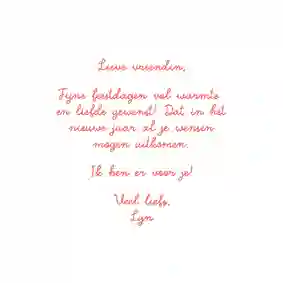 Lieve vriendin,
Fijne feestdagen vol warmte
en liefde gewenst! Dat in het
nieuwe jaar al je wensen
mogen uitkomen.
Ik ben er voor je!
Veel liefs,
Lyn